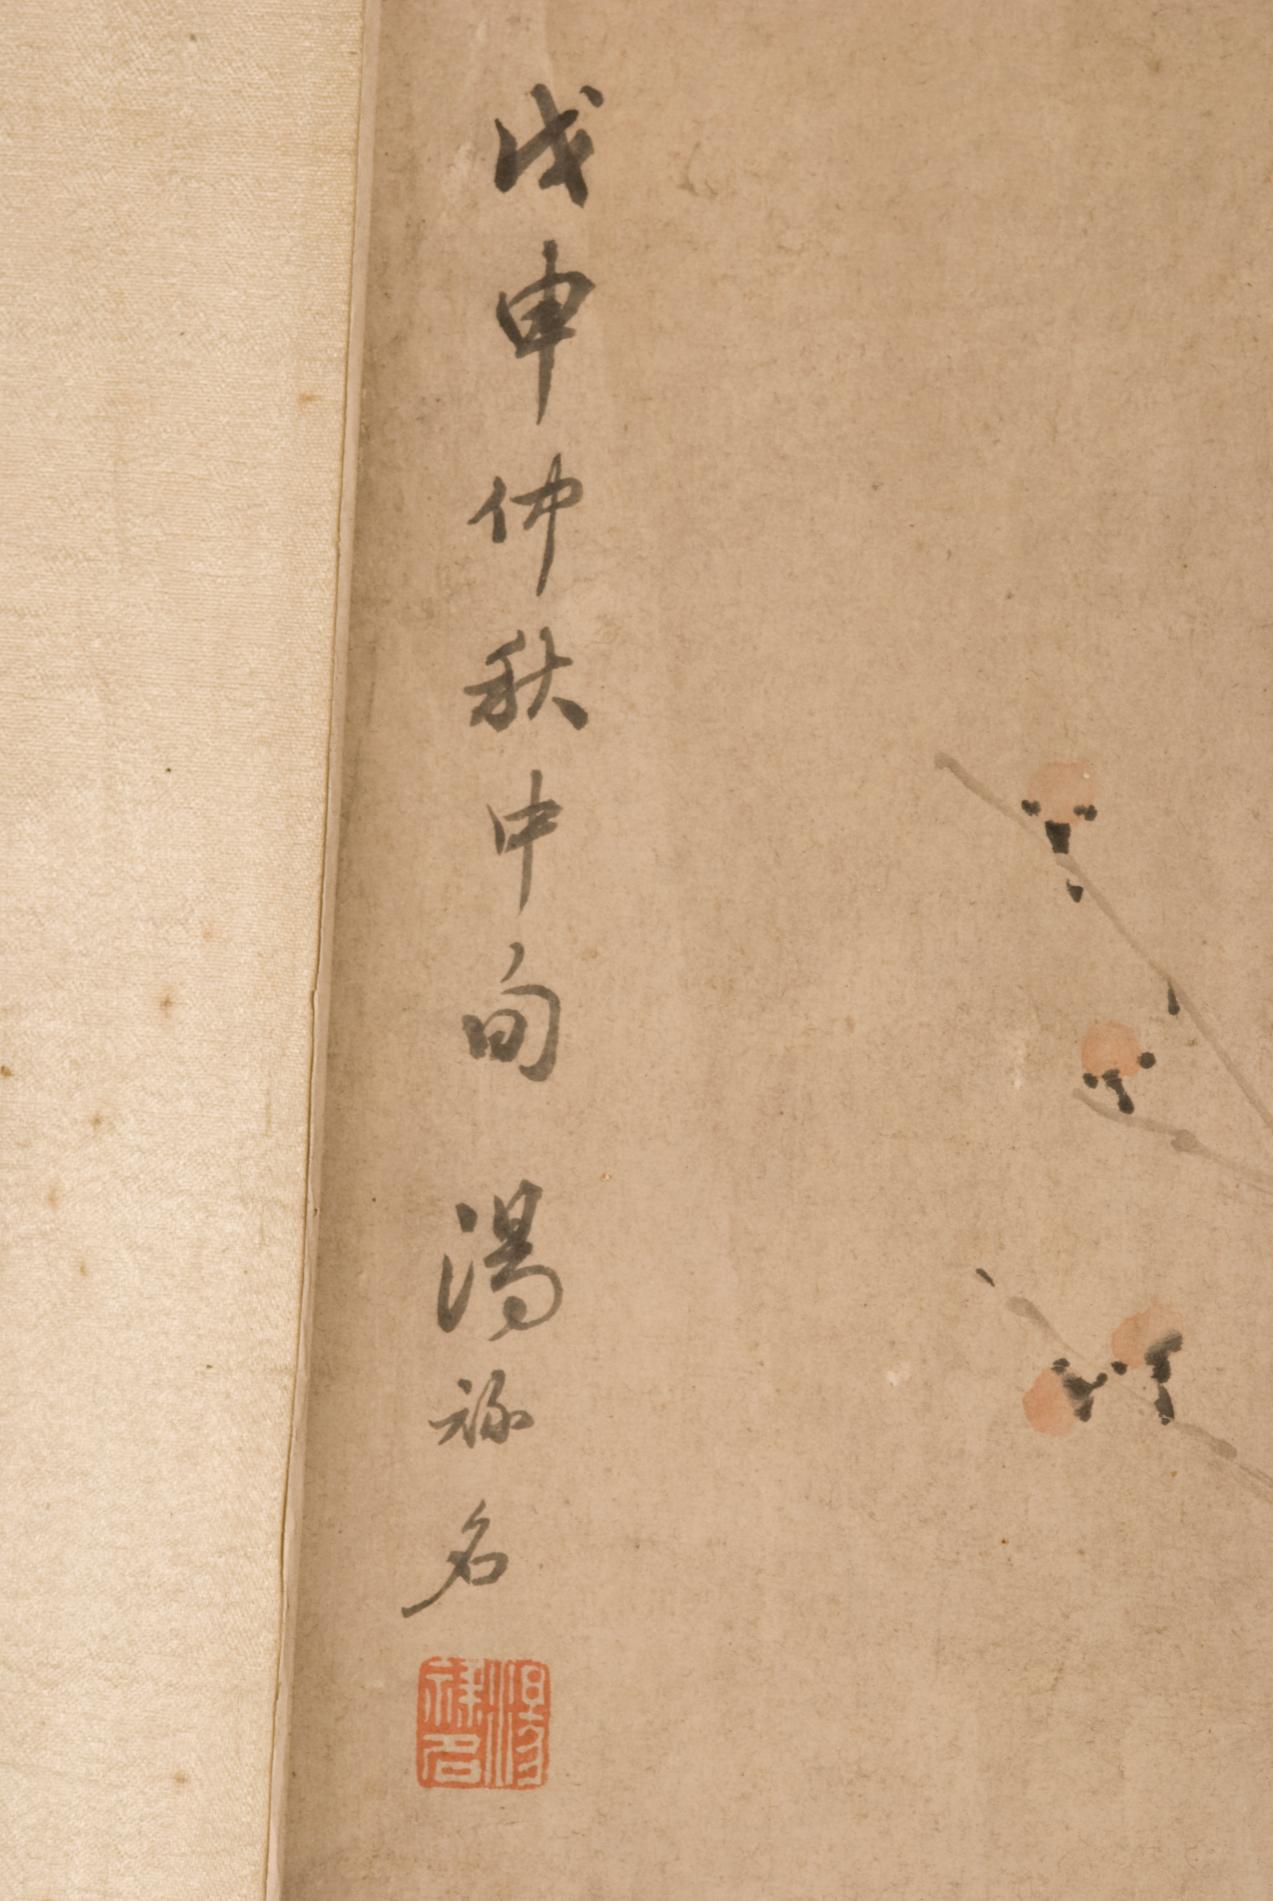 戊申仲秋中旬 湯祿名
湯祿名